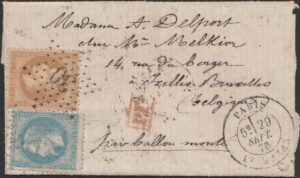 Madame A Delport
chez Mr Melkior
14, rue du Berger
à Ixelles Bruxelles
Belgique
par ballon monté
PARIS
5E 29
SEPT.
PD